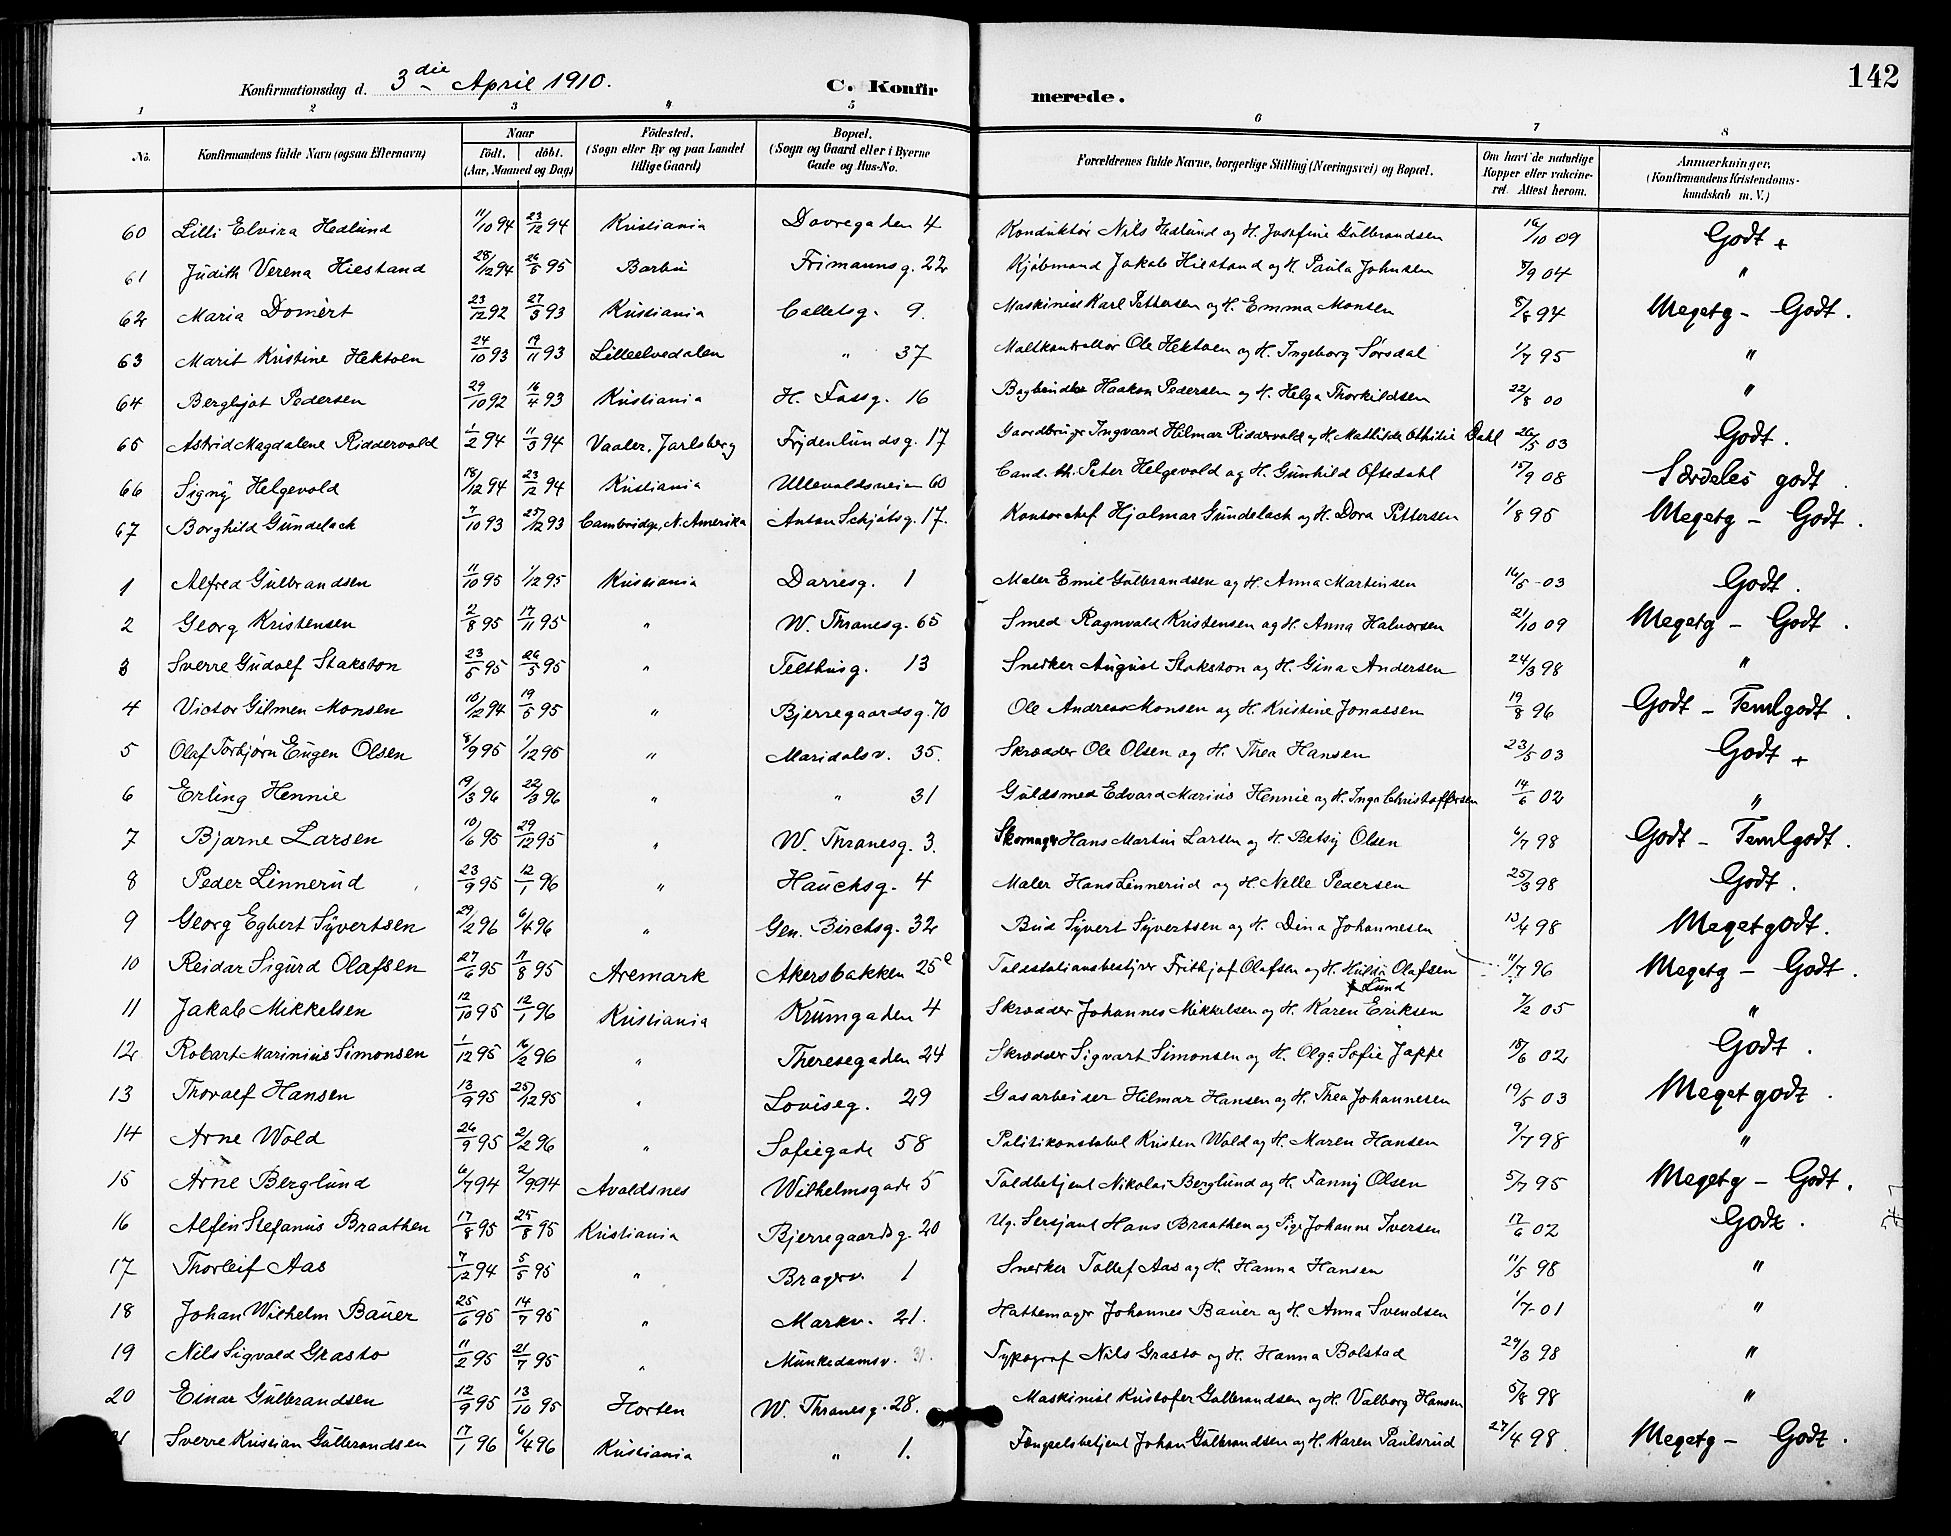 142
Konfirmationsdag d. 3die April 1910. C. Konfirmerede.
1 2 3 " 5 6 7 8
No. Konfirmandens fulde Navn (ogsaa Efternavn) Naar Födt. döbt. (Aar, Maaned og Dag) Födested. (Sogn eller By og paa Landet tillige Gaard) Bopæl. (Sogn og Gaard eller i Byerne Gade og Hus-No. Forældrenes fulde Navne, borgerlige Stilling (Næringsvei) og Bopæl. Om havt de naturlige Kopper eller vaccineret. Attest herom. Anmærkninger. (Konfirmandens Kristendomskundskab m. V.)
60 Lilli Elvira Hedlund 11/10 94 23/12 94 Kristiania Dovregaden 4 Konduktør Nils Hedlund og H. Josefine Gulbrandsen 16/10 09 Godt +
61 Judith Verena Hiestand 28/12 94 26/5 95 Barbu Frimannsg. 22 Kjøbmand Jakob Hiestand og H. Paula Johnsen 8/9 04 "
62 Maria Domért 23/12 92 27/3 93 Kristiania Calletsg. 9. Maskinist Karl Pettersen og H. Emma Monsen 8/8 94 Megetg - Godt.
63 Marit Kristine Hektoen 24/10 93 19/11 93 Lilleelvedalen " 37 Maltkontrollør Ole Hektoen og H. Ingeborg Sørsdal 1/7 95 "
64 Bergljot Pedersen 29/10 92 16/4 93 Kristiania H. Fossg. 16 Bogbinder Haakon Pedersen og H. Helga Thorkildsen 22/8 00 "
65 Astrid Magdalene Riddervold 1/2 94 11/3 94 Vaaler, Jarlsberg Frydenlundsg. 17 Gaardbruger Ingvard Hilmar Riddervold og H. Mathilde Othilie Dahl 26/5 03 Godt.
66 Signy Helgevold 18/12 94 23/12 94 Kristiania Ullevoldsveien 60 Cand. th. Peter Helgevold og H. Gunhild Oftedahl 15/9 08 Særdeles godt.
67 Borghild Gundelach 7/10 93 25/12 93 Cambridge, N. Amerika Anton Schjøtsg. 17. Kontorchef Hjalmar Gundelach og H. Dora Pettersen 1/8 95 Megetg - Godt.
1 Alfred Gulbrandsen 11/10 95 1/12 95 Kristiania Darresg. 1 Maler Emil Gulbrandsen og H. Anna Martinsen 16/5 03 Godt.
2 Georg Kristensen 2/8 95 17/11 95 " W. Thranesg. 65 Smed Ragnvald Kristensen og H. Anna Halvorsen 21/10 09 Megetg - Godt.
3 Sverre Gudolf Stakston 23/5 95 26/5 95 " Telthusg. 13 Snedker August Stakston og H. Gina Andersen 24/3 98 "
4 Victor Gilmen Monsen 10/12 94 19/5 95 " Bjerregaardsg. 70 Ole Andreas Monsen og H. Kristine Jonassen 19/8 96 Godt - Temlgodt.
5 Olaf Torbjørn Eugen Olsen 8/9 95 1/12 95 " Maridalsv. 35. Skrædder Ole Olsen og H. Thea Hansen 23/5 03 Godt +
6 Erling Hennie 19/3 96 22/3 96 " " 31 Guldsmed Edvard Marius Hennie og H. Inga Christoffersen 14/6 02 "
7 Bjarne Larsen 10/6 95 29/12 95 " W. Thranesg. 3. Skomager Hans Martin Larsen og H. Betsy Olsen 6/7 98 Godt - Temlgodt.
8 Peder Linnerud 23/9 95 12/1 96 " Hauchsg. 4 Maler Hans Linnerud og H. Nelle Pedersen 25/3 98 Godt.
9 Georg Egbert Syvertsen 29/2 96 6/4 96 " Gen. Birchsg. 32 Bud Syvert Syvertsen og H. Dina Johannesen 13/4 98 Megetgodt.
10 Reidar Sigurd Olafsen 27/6 95 11/8 95 Aremark Akersbakken 25e Toldstationsbestyrer Frithjof Olafsen og H. Hulda Olafsen f. Lund 11/7 96 Megetg - Godt.
11 Jakob Mikkelsen 12/10 95 12/1 96 Kristiania Krumgaden 4 Skrædder Johannes Mikkelsen og H. Karen Eriksen 7/2 05 "
12 Robart Marinius Simonsen 1/12 95 16/2 96 " Theresegaden 24 Skrædder Sigvart Simonsen og H. Olga Sofie Jappe 18/6 02 Godt.
13 Thoralf Hansen 13/9 95 25/12 95 " Loviseg. 29 Gasarbeider Hilmar Hansen og H. Thea Johannesen 19/5 03 Megetgodt.
14 Arne Wold 26/9 95 2/2 96 " Sofiegade 58 Politikonstabel Kristen Wold og H. Maren Hansen 9/7 98 "
15 Arne Berglund 6/7 94 2/9 94 Avaldsnes Wilhelmsgade 5 Toldbetjent Nikolai Berglund og H. Fanny Olsen 5/7 95 Megetg - Godt.
16 Alfin Stefanus Braathen 17/8 95 25/8 95 Kristiania Bjerregaardsg. 20 Ug. Sersjant Hans Braathen og Pige Johanne Iversen 17/6 02 Godt.
17 Thorleif Aas 7/12 94 5/5 95 " Bragerv. 1 Snedker Tollef Aas og H. Hanna Hansen 11/5 98 "
18 Johan Wilhelm Bauer 25/6 95 14/7 95 " Markv. 21. Hattemager Johannes Bauer og H. Anna Svendsen 1/7 01 "
19 Nils Sigvald Grasto 11/2 95 21/7 95 " Munkedamsv. 31. Typograf Nils Grasto og H. Hanna Bolstad 29/3 98 "
20 Einar Gulbrandsen 12/9 95 13/10 95 Horten W. Thranesg. 28. Maskinist Kristofer Gulbrandsen og H. Valborg Hansen 5/8 98 "
Sverre Kristian Gulbrandsen 17/1 96 6/4 96 Kristiania " 1. Fængselsbetjent Johan Gulbrandsen og H. Karen Paulsrud 27/4 98. Megetg - Godt.